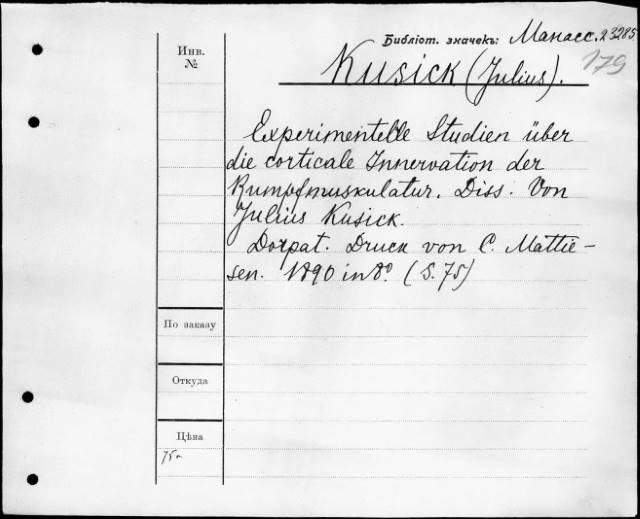 Библіот. значекъ: Манасс. 23285
179
Инв.
№
Kusick (Julius).
Experimentelle Studien über
die corticale Innervation der
Rumpfmuskulatur. Diss. Von
Julius Kusick.
Dorpat. Druck von C. Mattie-
sen. 1890 in 8º. (S. 75)
По заказу
Откуда
Цѣна
75